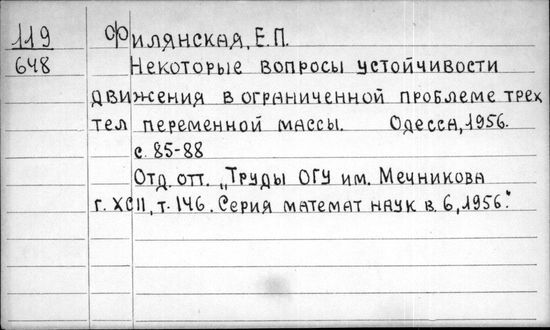 119 Филянская, Е.П.
648 Некоторые вопросы устойчивости
движения в ограниченной проблеме трех
тел переменной массы. Одесса, 1956.
с. 85-88
Отд. отт. „Труды ОГУ им. Мечникова
г. XCII, т. 146. Серия математ наук в. 6, 1956."